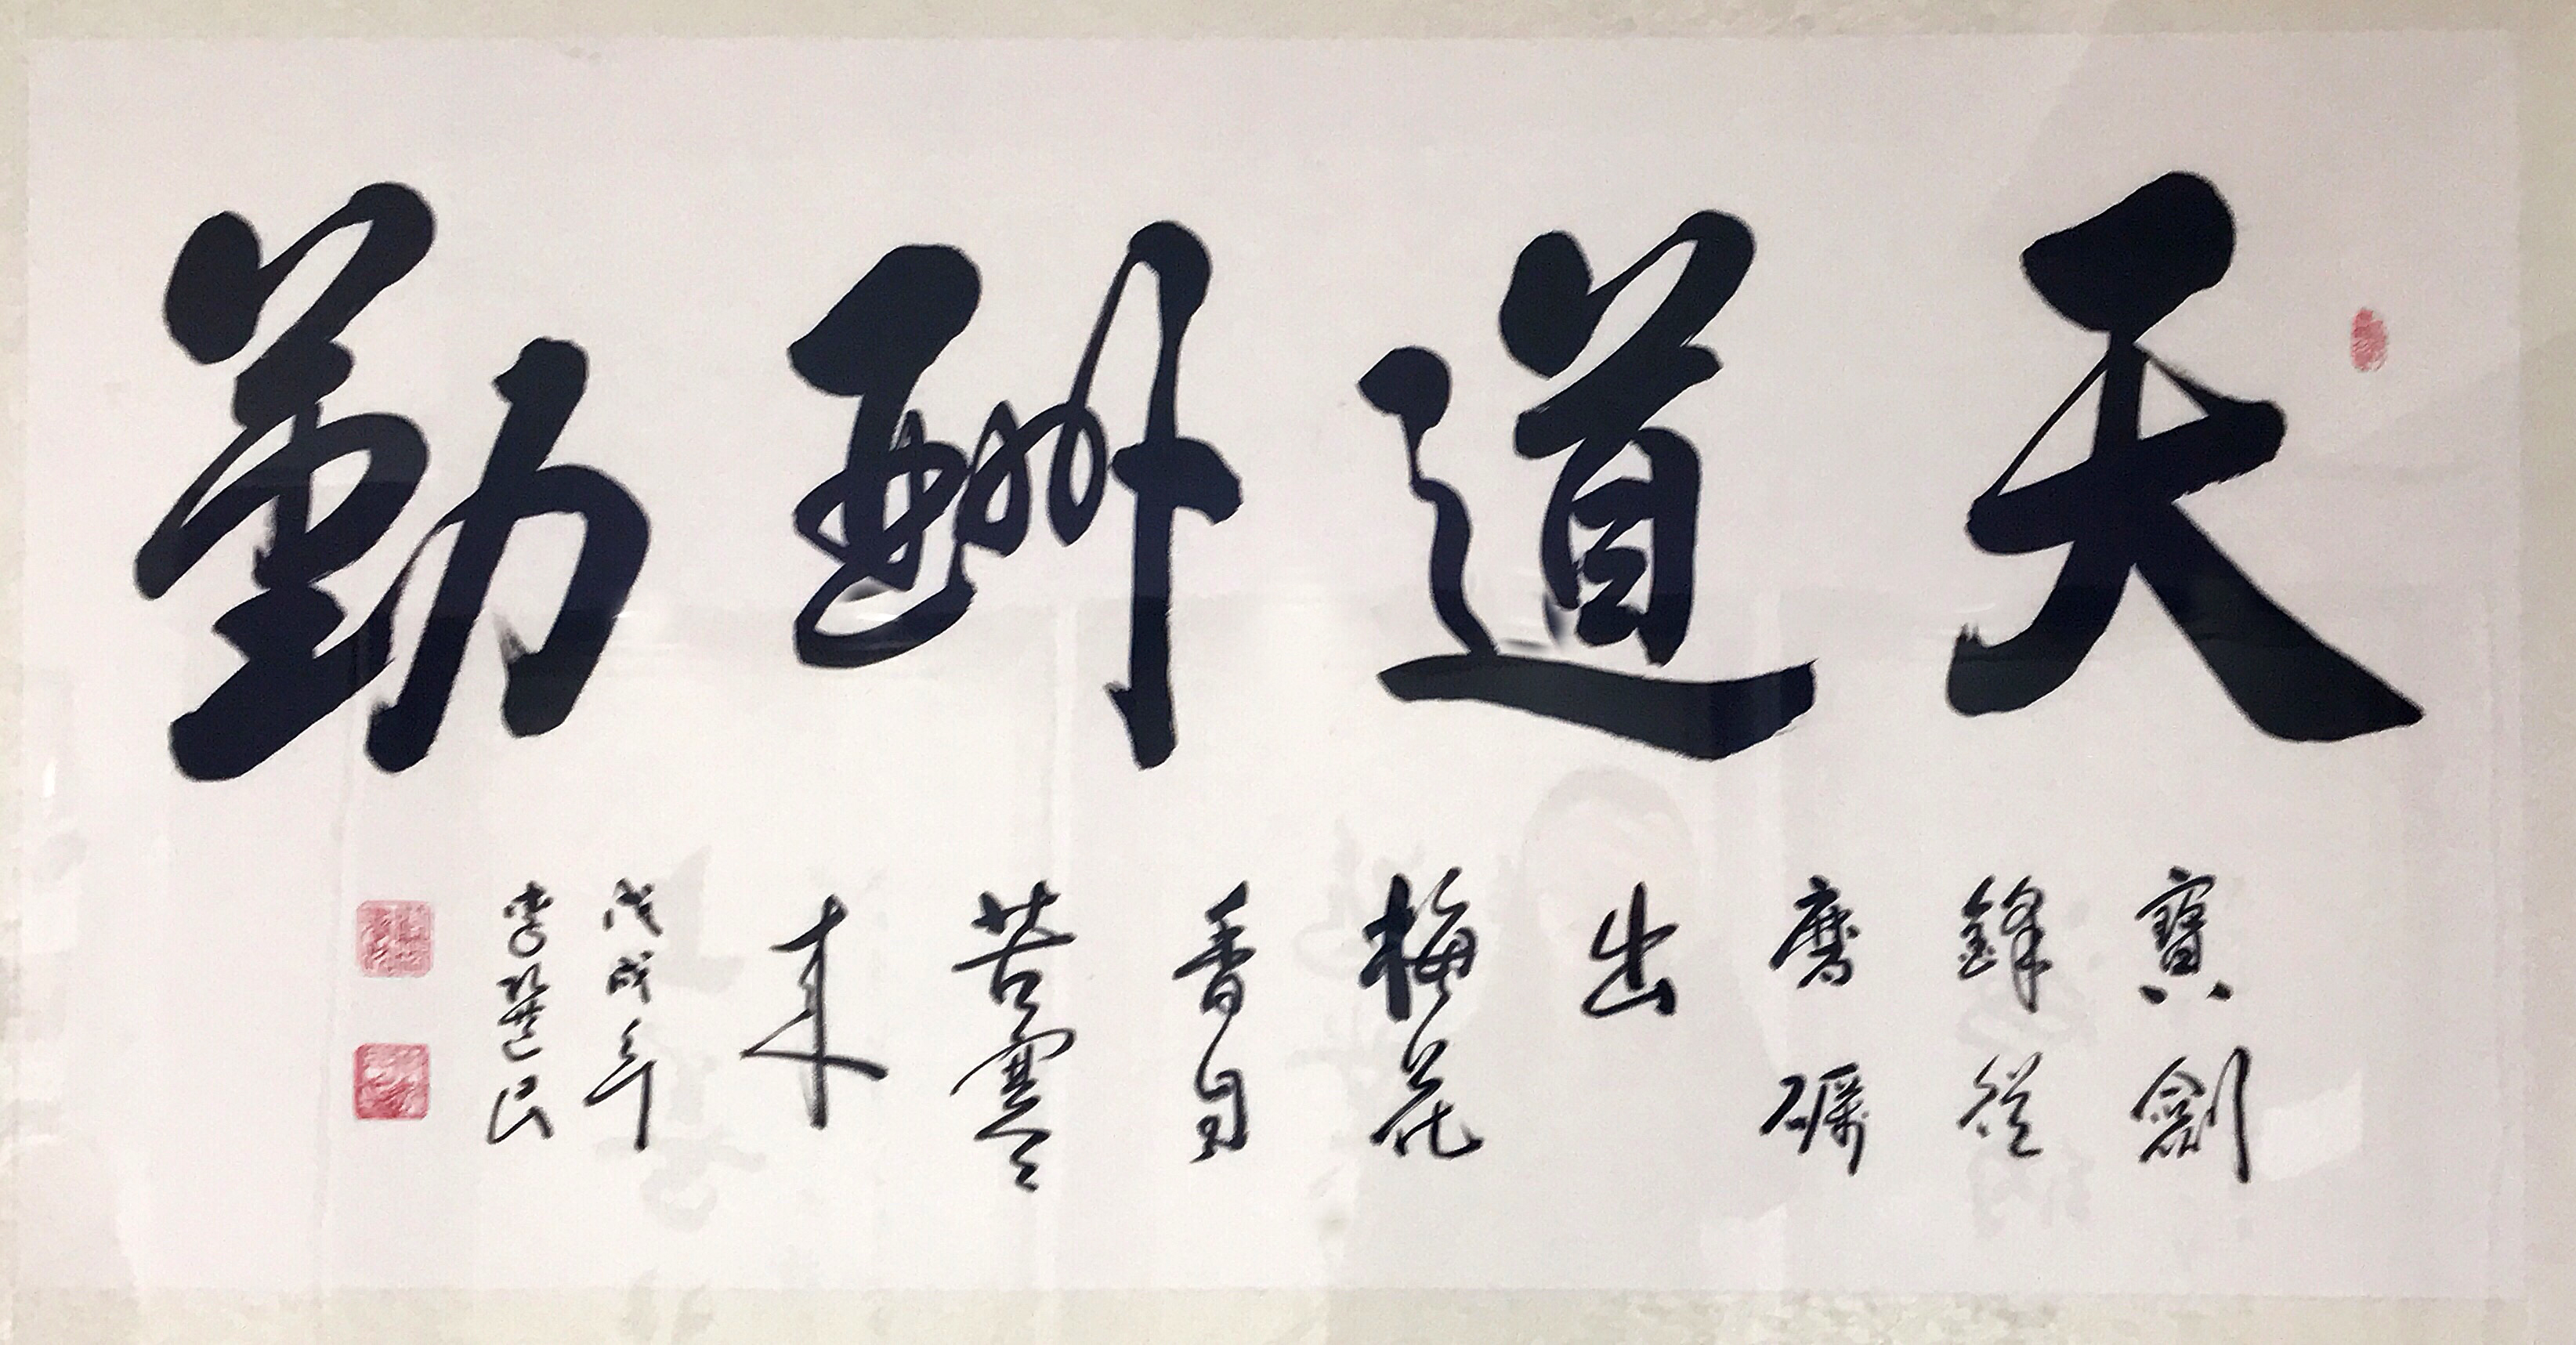 天道酬勤
寶劍
鋒從
磨礪
出
梅花
香自
苦寒
來
戊戌年